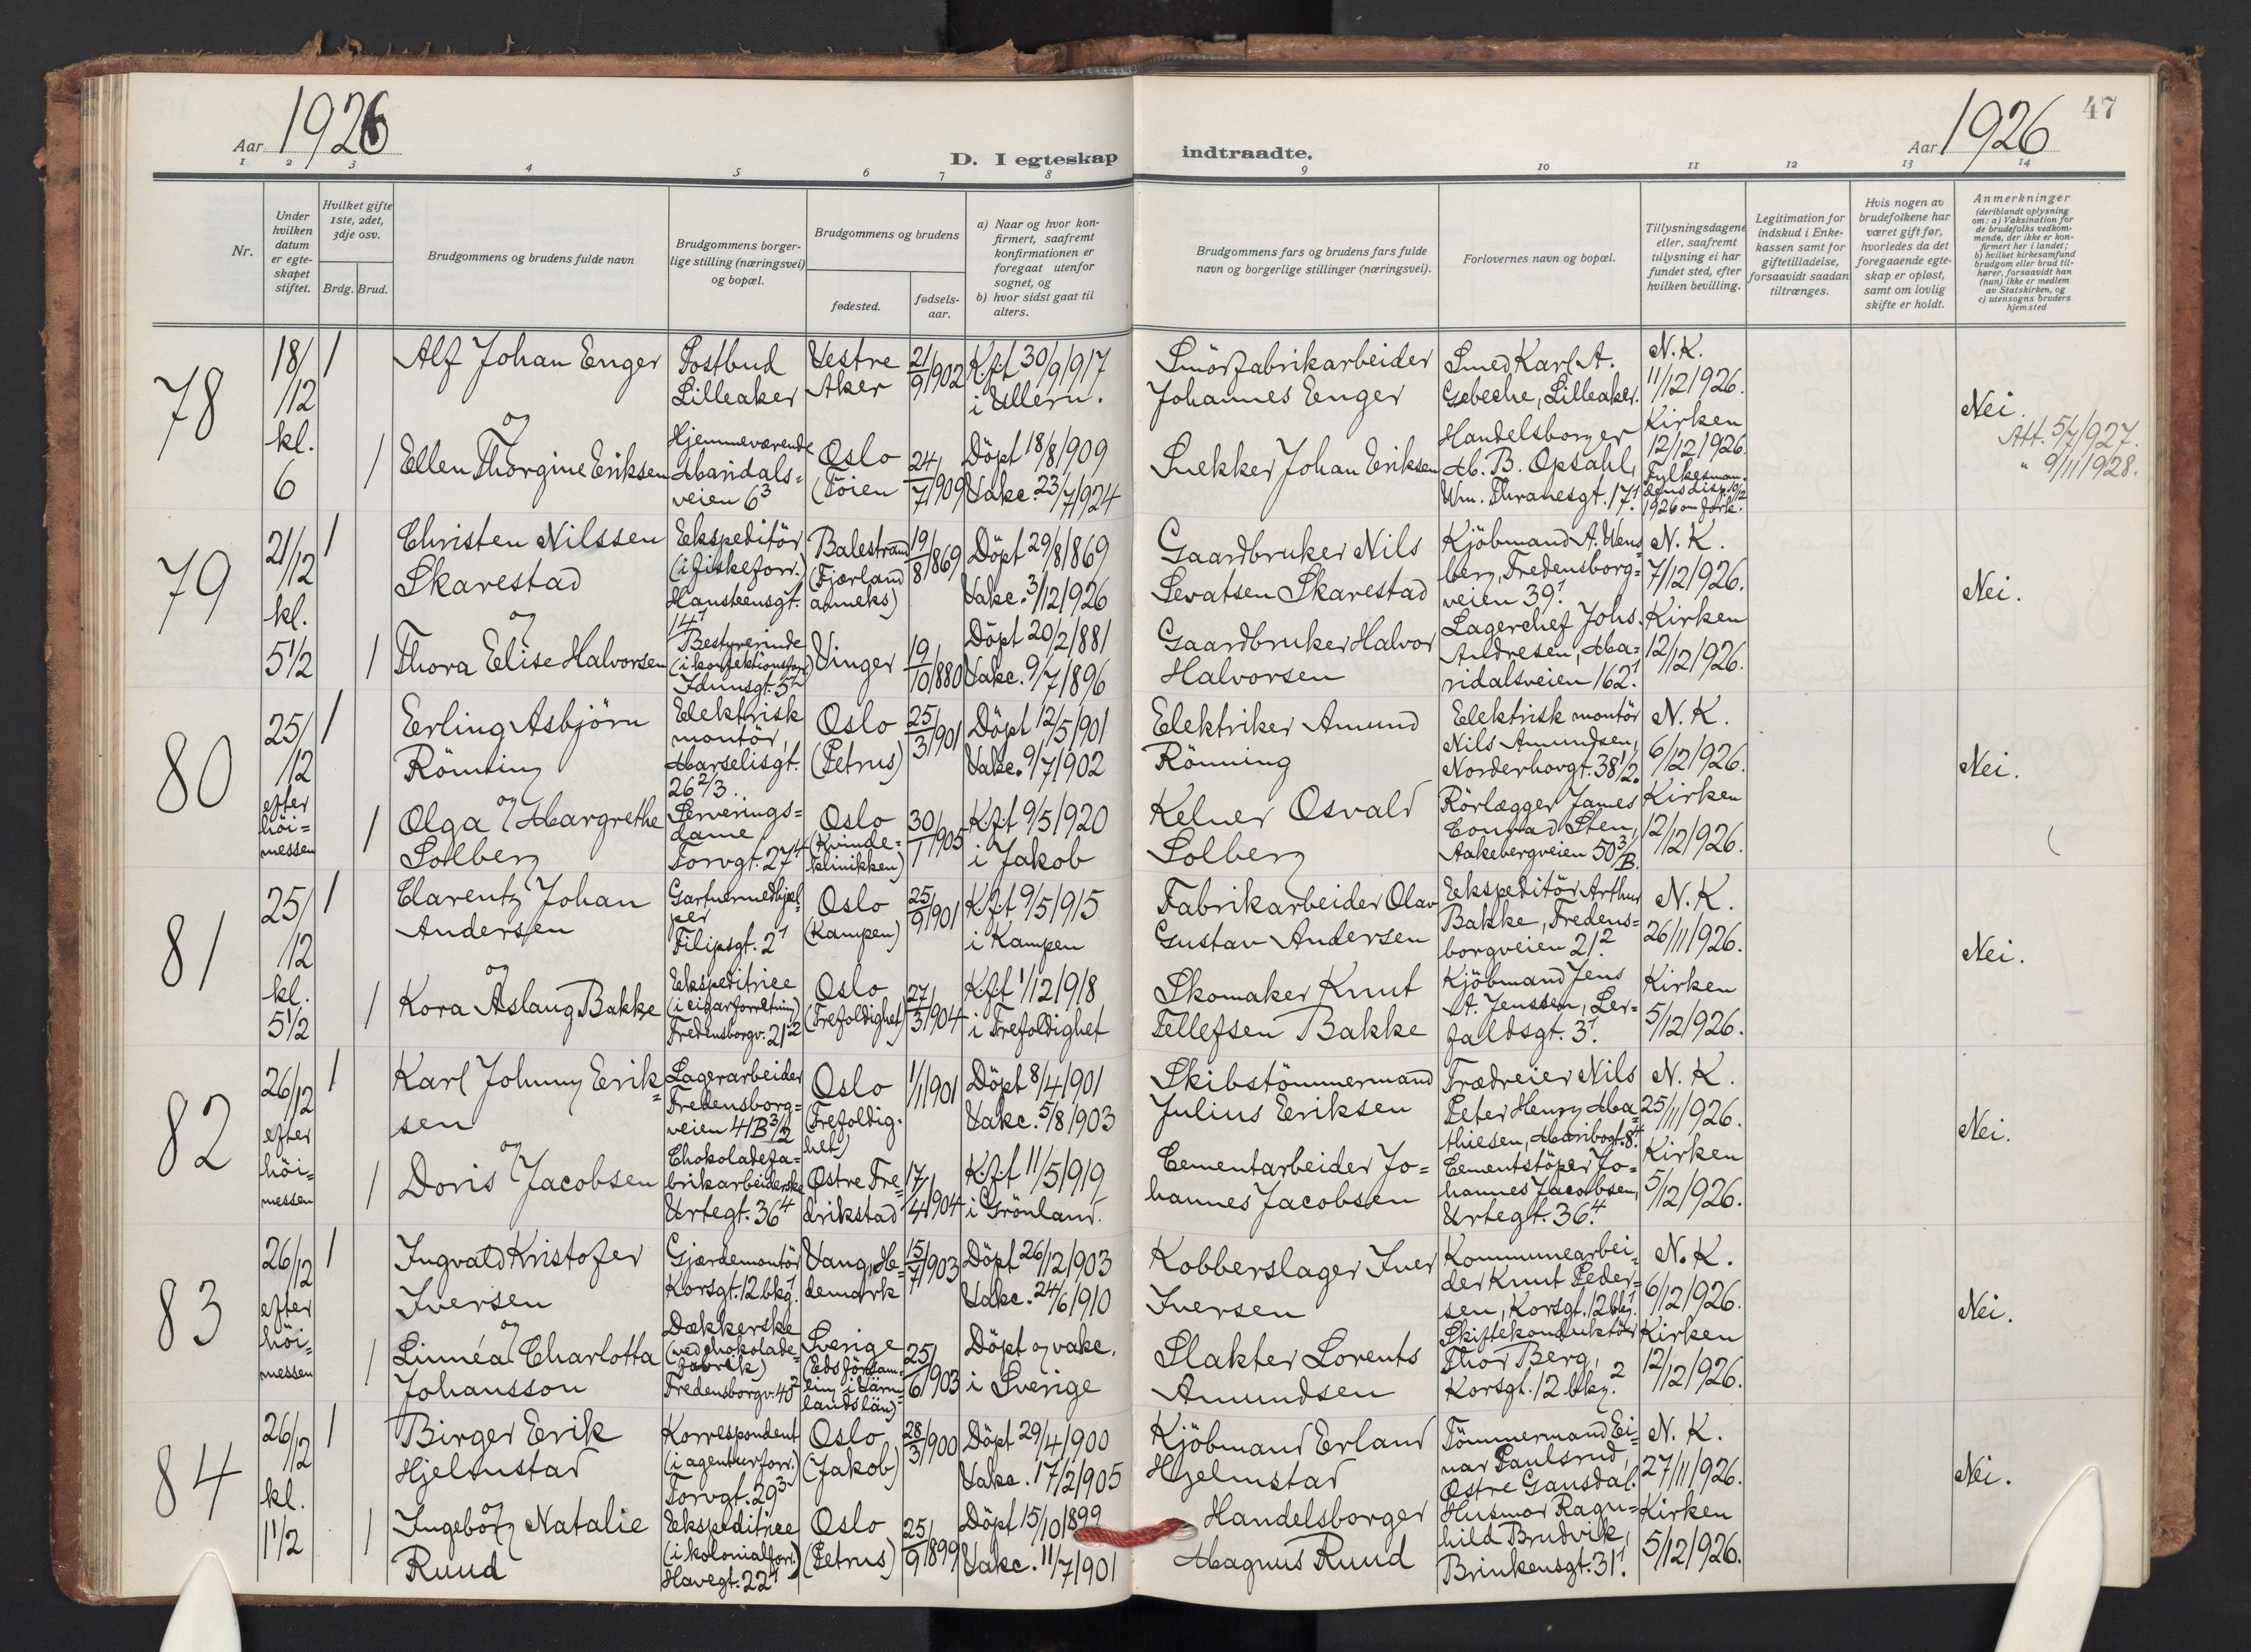 Aar 1926
D. I egteskap
indtraadte.
Aar 1926
47
1 2 3 4 5 6 7 8 9 10 11 12 13 14
Nr.
Under hvilken datum er egte-skapet stiftet.
Hvilket gifte 1ste, 2det, 3dje osv.
Brdg. Brud.
Brudgommens og brudens fulde navn
Brudgommens borger-lige stilling (næringsvei) og bopæl.
Brudgommens og brudens
fødested.
fødsels-aar.
a) Naar og hvor kon-firmert, saafremt konfirmationen er foregaat utenfor sognet, og
b) hvor sidst gaat til alters.
Brudgommens fars og brudens fars fulde navn og borgerlige stillinger (næringsvei).
Forlovernes navn og bopæl.
Tillysningsdagene eller, saafremt tillysning ei har fundet sted, efter hvilken bevilling.
Legitimation for indskud i Enke-kassen samt for giftetilladelse, forsaavidt saadan tiltrænges.
Hvis nogen av brudefolkene har været gift før, hvorledes da det foregaaende egte-skap er opløst, samt om lovlig skifte er holdt.
Anmerkninger
(deriblandt oplysning om: a) Vaksination for de brudefolks vedkom-mende, der ikke er kon-firmert her i landet; b) hvilket kirkesamfund brudgom eller brud til-hører, forsaavidt han (hun) ikke er medlem av Statskirken, og c) utensogns bruders hjemsted
78
18/12 kl. 6
1
Alf Johan Enger
Postbud
Lilleaker
Vestre
Aker
21/9 902
Kft 30/9 1917
i Ullern.
Smörfabrikarbeider
Johannes Enger
Smed Karl A.
Gebeche, Lilleaker.
N. K.
11/12 1926.
Nei.
Att. 5/7 1927.
" 9/11 1928.
og
1
Ellen Thorgine Eriksen
Hjemmeværende
Maridals=
veien 6³
Oslo
(Töien
24/7 1909
Döpt 18/8 1909
Vakc. 23/7 1924
Snekker Johan Eriksen
Handelsborger
M. B. Opsahl,
Wm. Thranesgt. 17¹.
Kirken
12/12 1926.
Fylkesman-
dens disp. 10/12
1926 om fork.
79
21/12 kl. 5½
1
Christen Nilssen
Skarestad
Ekspeditör
(i fiskeforr.)
Hansteensgt.
14¹
Balestrand
(Fjærland
anneks)
19/8 869
Döpt 29/8 1869
Vakc. 3/12 1926
Gaardbruker Nils
Sevatsen Skarestad
Kjöbmand A. Wens=
berg, Fredensborg=
veien 39¹.
N. K.
7/12 1926.
Nei.
og
1
Thora Elise Halvorsen
Bestyrerinde
(i konfektionsforr.)
Idunsgt. 5²
Vinger
19/10 880
Döpt 20/2 1881
Vakc. 9/7 1896
Gaardbruker Halvor
Halvorsen
Lagerchef Johs.
Andresen, Ma=
ridalsveien 162¹.
Kirken
12/12 1926.
80
25/12 efter höi= messen
1
Erling Asbjörn
Rönning
Elektrisk
montör,
Marselisgt.
26 2/3.
Oslo
(Petrus)
25/3 1901
Döpt 12/5 1901
Vakc. 9/7 1902
Elektriker Amund
Rönning
Elektrisk montör
Nils Amundsen,
Norderhovgt. 38 1/2.
N. K.
6/12 1926.
Nei.
og
1
Olga Margrethe
Solberg
Serverings=
dame
Torvgt. 27⁴
Oslo
(Kvinde=
klinikken)
30/1 1905
Kft 9/5 1920
i Jakob
Kelner Osvald
Solberg
Rörlægger James
Conrad Sten,
Aakebergveien 50 3/B.
Kirken
12/12 1926.
81
25/12 kl. 5½
1
Clarentz Johan
Andersen
Gartnermedhjel=
per
Filipsgt. 2¹
Oslo
(Kampen)
25/9 1901
Kft 9/5 1915
i Kampen
Fabrikarbeider Olav
Gustav Andersen
Ekspeditör Arthur
Bakke, Fredens=
borgveien 21².
N. K.
26/11 1926.
Nei.
og
1
Kora Aslaug Bakke
Ekspeditrice
(i cigarforretning)
Fredensborgv. 21²
Oslo
(Trefoldighet)
27/3 1904
Kft 1/12 1918
i Trefoldighet
Skomaker Knut
Tellefsen Bakke
Kjöbmand Jens
A. Jenssen, Ler=
faldsgt. 3¹.
Kirken
5/12 1926.
82
26/12 efter höi= messen
1
Karl Johnny Erik=
sen
Lagerarbeider
Fredensborg=
veien 41B 3/2
Oslo
(Trefoldig-
het)
1/1 1901
Döpt 8/4 1901
Vakc. 5/8 1903
Skibstömmermand
Julius Eriksen
Trædreier Nils
Peter Henry Ma=
thiesen, Maribogt. 8⁴.
N. K.
25/11 1926.
Nei.
og
1
Doris Jacobsen
Chokoladefa=
brikarbeiderske
Urtegt. 36⁴
Østre Fre=
drikstad
17/4 1904
Kft 11/5 1919
i Grönland.
Cementarbeider Jo=
hannes Jacobsen
Cementstöper Jo=
hannes Jacobsen,
Urtegt. 36⁴.
Kirken
5/12 1926.
83
26/12 efter höi= messen
1
Ingvald Kristofer
Iversen
Gjærdemontör
Korsgt. 12 bkg¹.
Vang, He=
demark
15/7 1903
Döpt 26/12 1903
Vakc. 24/6 1910
Kobberslager Iver
Iversen
Kommunearbei=
der Knut Peder=
sen, Korsgt. 12 bkg¹.
N. K.
6/12 1926.
Nei.
og
1
Linnéa Charlotta
Johansson
Dækkerske
(ved chokolade=
fabrik)
Fredensborgv. 40²
Sverige
(Eds försam=
ling i Värm=
lands län)
25/6 1903
Döpt og vakc.
i Sverige
Slakter Lorents
Amundsen
Skiftekonduktör
Thor Berg,
Korsgt. 12 bkg.²
Kirken
12/12 1926.
84
26/12 kl. 1½
1
Birger Erik
Hjelmstad
Korrespondent
(i agenturforr.)
Torvgt. 29³
Oslo
(Jakob)
28/3 1900
Döpt 29/4 1900
Vakc. 17/2 1905
Kjöbmand Erland
Hjelmstad
Tömmermand Ei=
nar Paulsrud,
Østre Gausdal.
N. K.
27/11 1926.
Nei.
og
1
Ingeborg Natalie
Ruud
Ekspeditrice
(i kolonialforr.)
Havegt. 22⁴
Oslo
(Petrus)
25/9 1899
Döpt 15/10 1899
Vakc. 11/7 1901
Handelsborger
Magnus Ruud
Husmor Ragn=
hild Brudvik,
Brinkensgt. 31¹.
Kirken
5/12 1926.